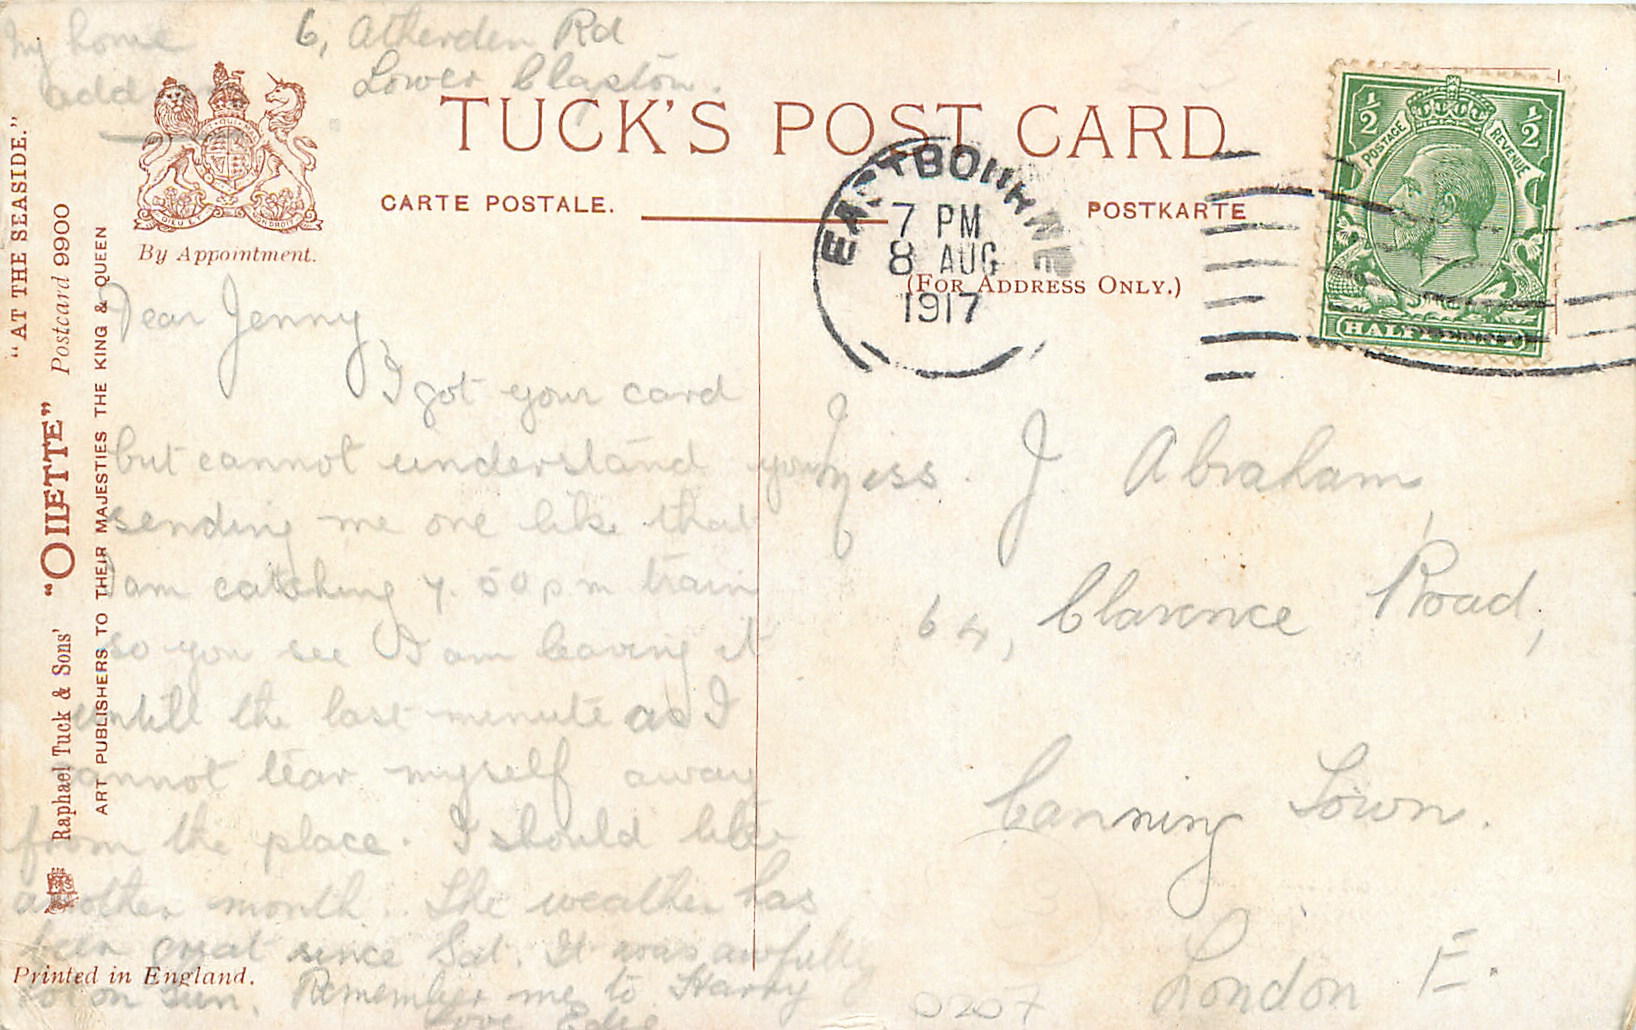 My home
address
6, Atherden Rd
Lower Clapton.
TUCK'S POST CARD
CARTE POSTALE.
POSTKARTE
(FOR ADDRESS ONLY.)
By Appointment.
EASTBOURNE
7 PM
8 AUG
1917
½ ½
POSTAGE REVENUE
HALFPENNY
"AT THE SEASIDE."
"OILETTE" Postcard 9900
Raphael Tuck & Sons'
ART PUBLISHERS TO THEIR MAJESTIES THE KING & QUEEN
Dear Jenny
I got your card
but cannot understand you
sending me one like that
I am catching 7.50 pm train
so you see I am leaving it
untill the last minute as I
cannot tear myself away
from the place. I should like
another month. The weather has
been great since Sat. It was awfully
hot on Sun. Remember me to Harry
Love Edie
Miss. J. Abraham,
64, Clarence Road,
Canning Town.
London E.
Printed in England.
0207